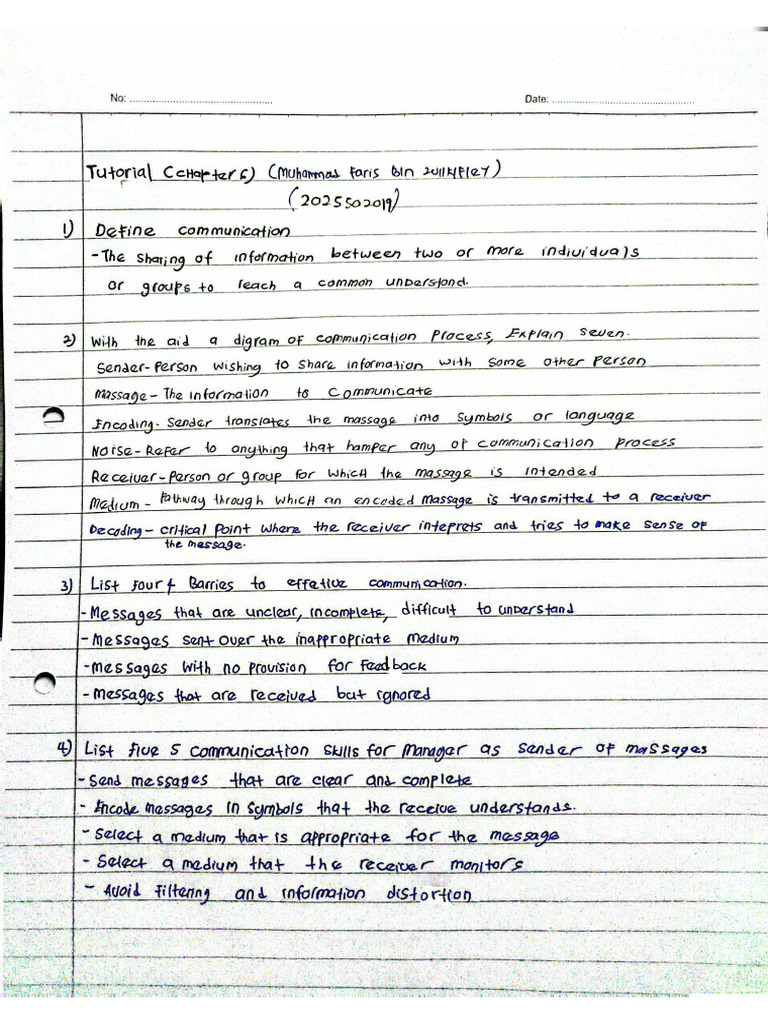 No: ............................................... Date: ...............................................
Tutorial (cHapter 6) (Muhammad Faris Bin
(2025502019)
1) Define communication
- The sharing of information between two or more individuals
or groups to reach a common understand.
2) With the aid a digram of communication Process, Explain seven.
Sender- Person wishing to share information with some other person
Massage - The information to communicate
Encoding- Sender translates the massage into symbols or language
Noise - Refer to anything that hamper any of communication process
Receiver - Person or group for which the massage is intended
Medium - Pathway through which an encoded massage is transmitted to a receiver
Decoding - critical point where the receiver inteprets and tries to make sense of
the message.
3) List four 4 Barries to effetive communication.
- Messages that are unclear, incomplete, difficult to understand
- Messages sent over the inappropriate medium
- Messages with no provision for feedback
- Messages that are received but ignored
4) List five 5 communication skills for Manager as sender of massages
- Send messages that are clear and complete
- Encode messages in symbols that the receive understands.
- Select a medium that is appropriate for the message
- Select a medium that the receiver monitors
- Avoid filtering and information distortion